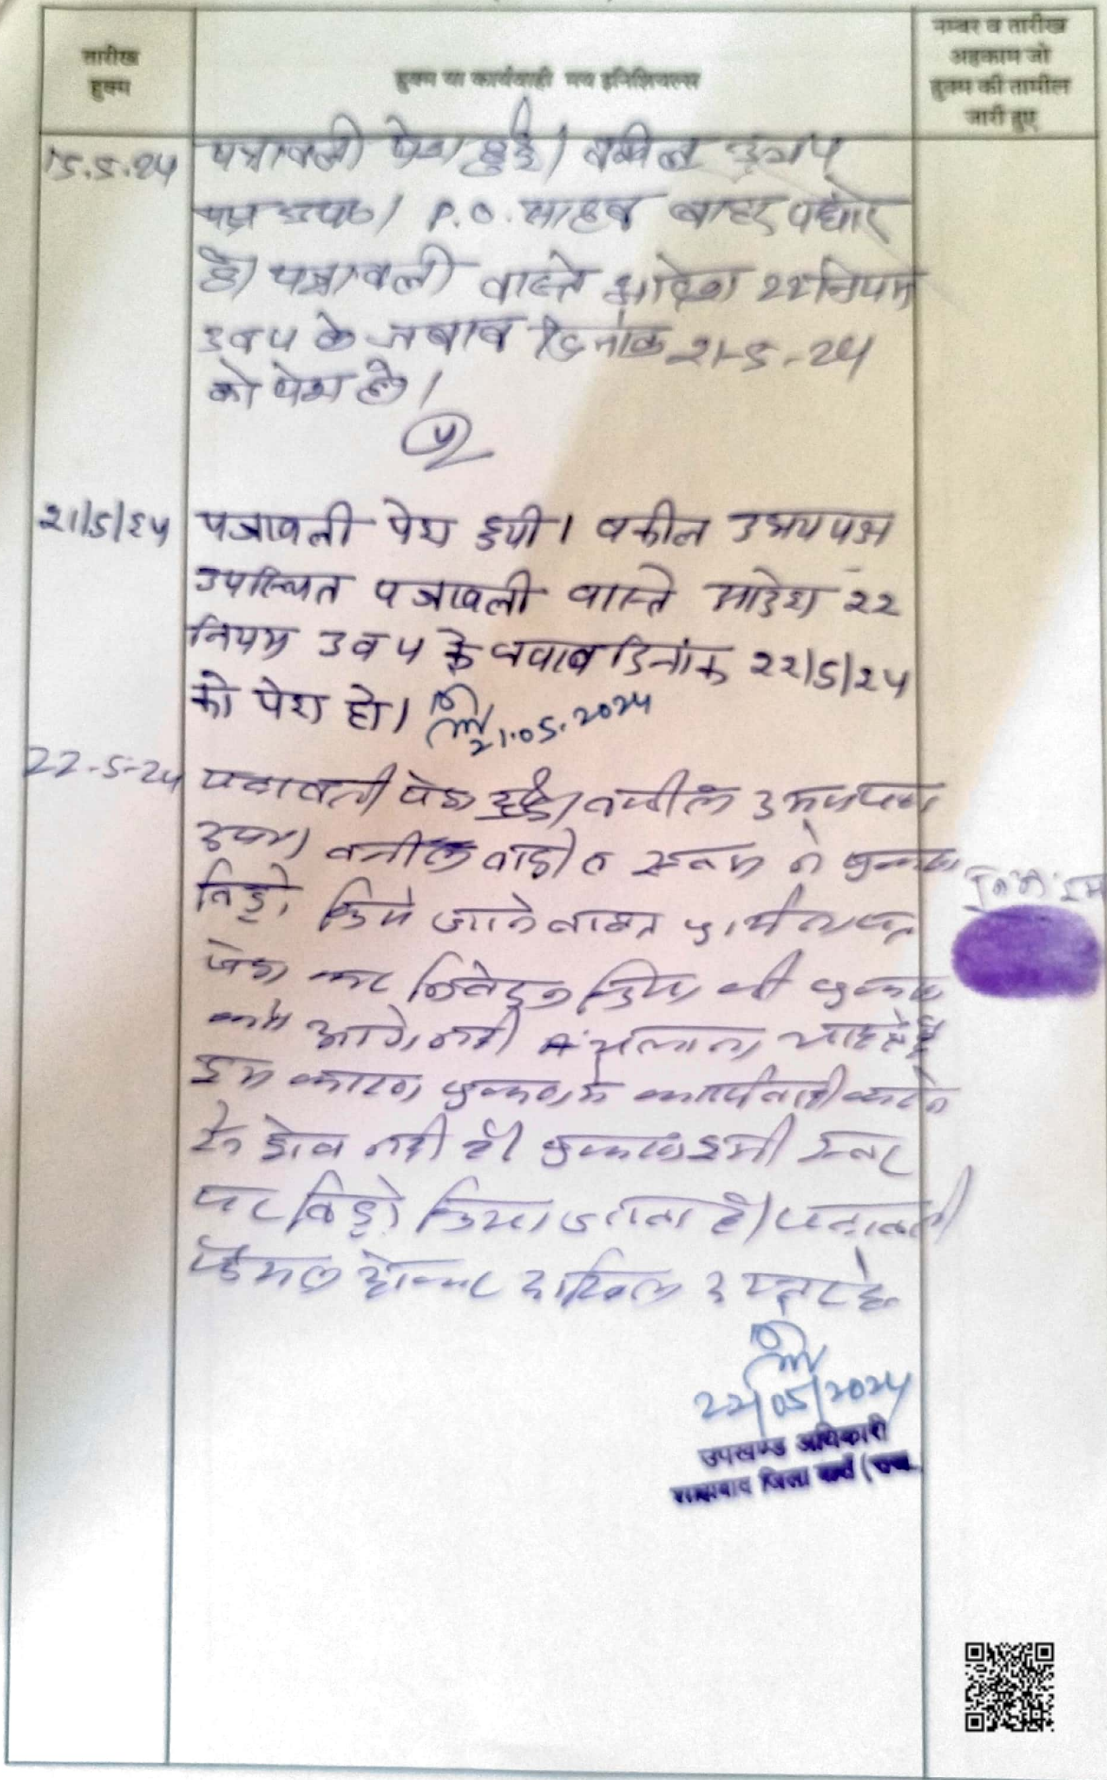 तारीख
हुक्म
हुक्म या कार्यवाही मय इनिशियल्स
नम्बर व तारीख
अहकाम जो
हुक्म की तामील
जारी हुए
15.5.24 पत्रावली पेश हुई। वकील उभय
पक्ष उप०। P.O. साहब बाहर पधारे
है। पत्रावली वास्ते आदेश 22 नियम
3 व 4 के जबाब दिनांक 21-5-24
को पेश हो।
21/5/24 पत्रावली पेश हुयी। वकील उभयपक्ष
उपस्थित पत्रावली वास्ते आदेश 22
नियम 3 व 4 के जवाब दिनांक 22/5/24
को पेश हो।
21.05.2024
22-5-24 पत्रावली पेश हुई। वकील उभयपक्ष
उप०। वकील वादी व स्वयं ने
विड्रो किये जाने बाबत प्रार्थना पत्र
पेश कर निवेदन किया की
आगे नही चलाना चाहते है
इस कारण कार्यवाही
नही है। इसी स्तर
पर विड्रो किया जाता है। पत्रावली
फैसल होकर दाखिल दफ्तर हो
22/05/2024
उपखण्ड अधिकारी
जिला बारां (राज.